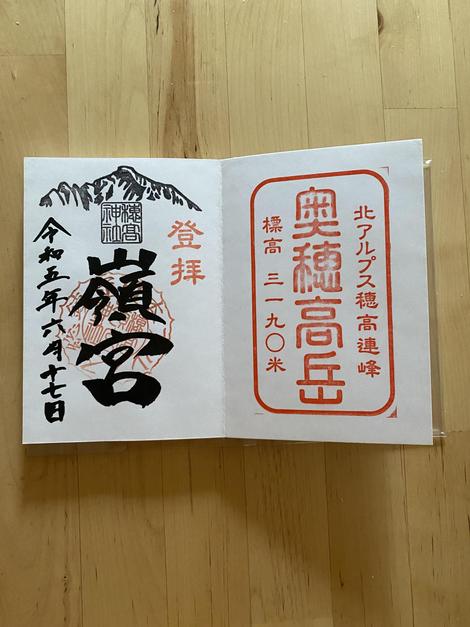 北アルプス穂高連峰
奥穂高岳
標高 三一九〇米
登拝
穂髙
神社
嶺宮
令和五年六月十七日